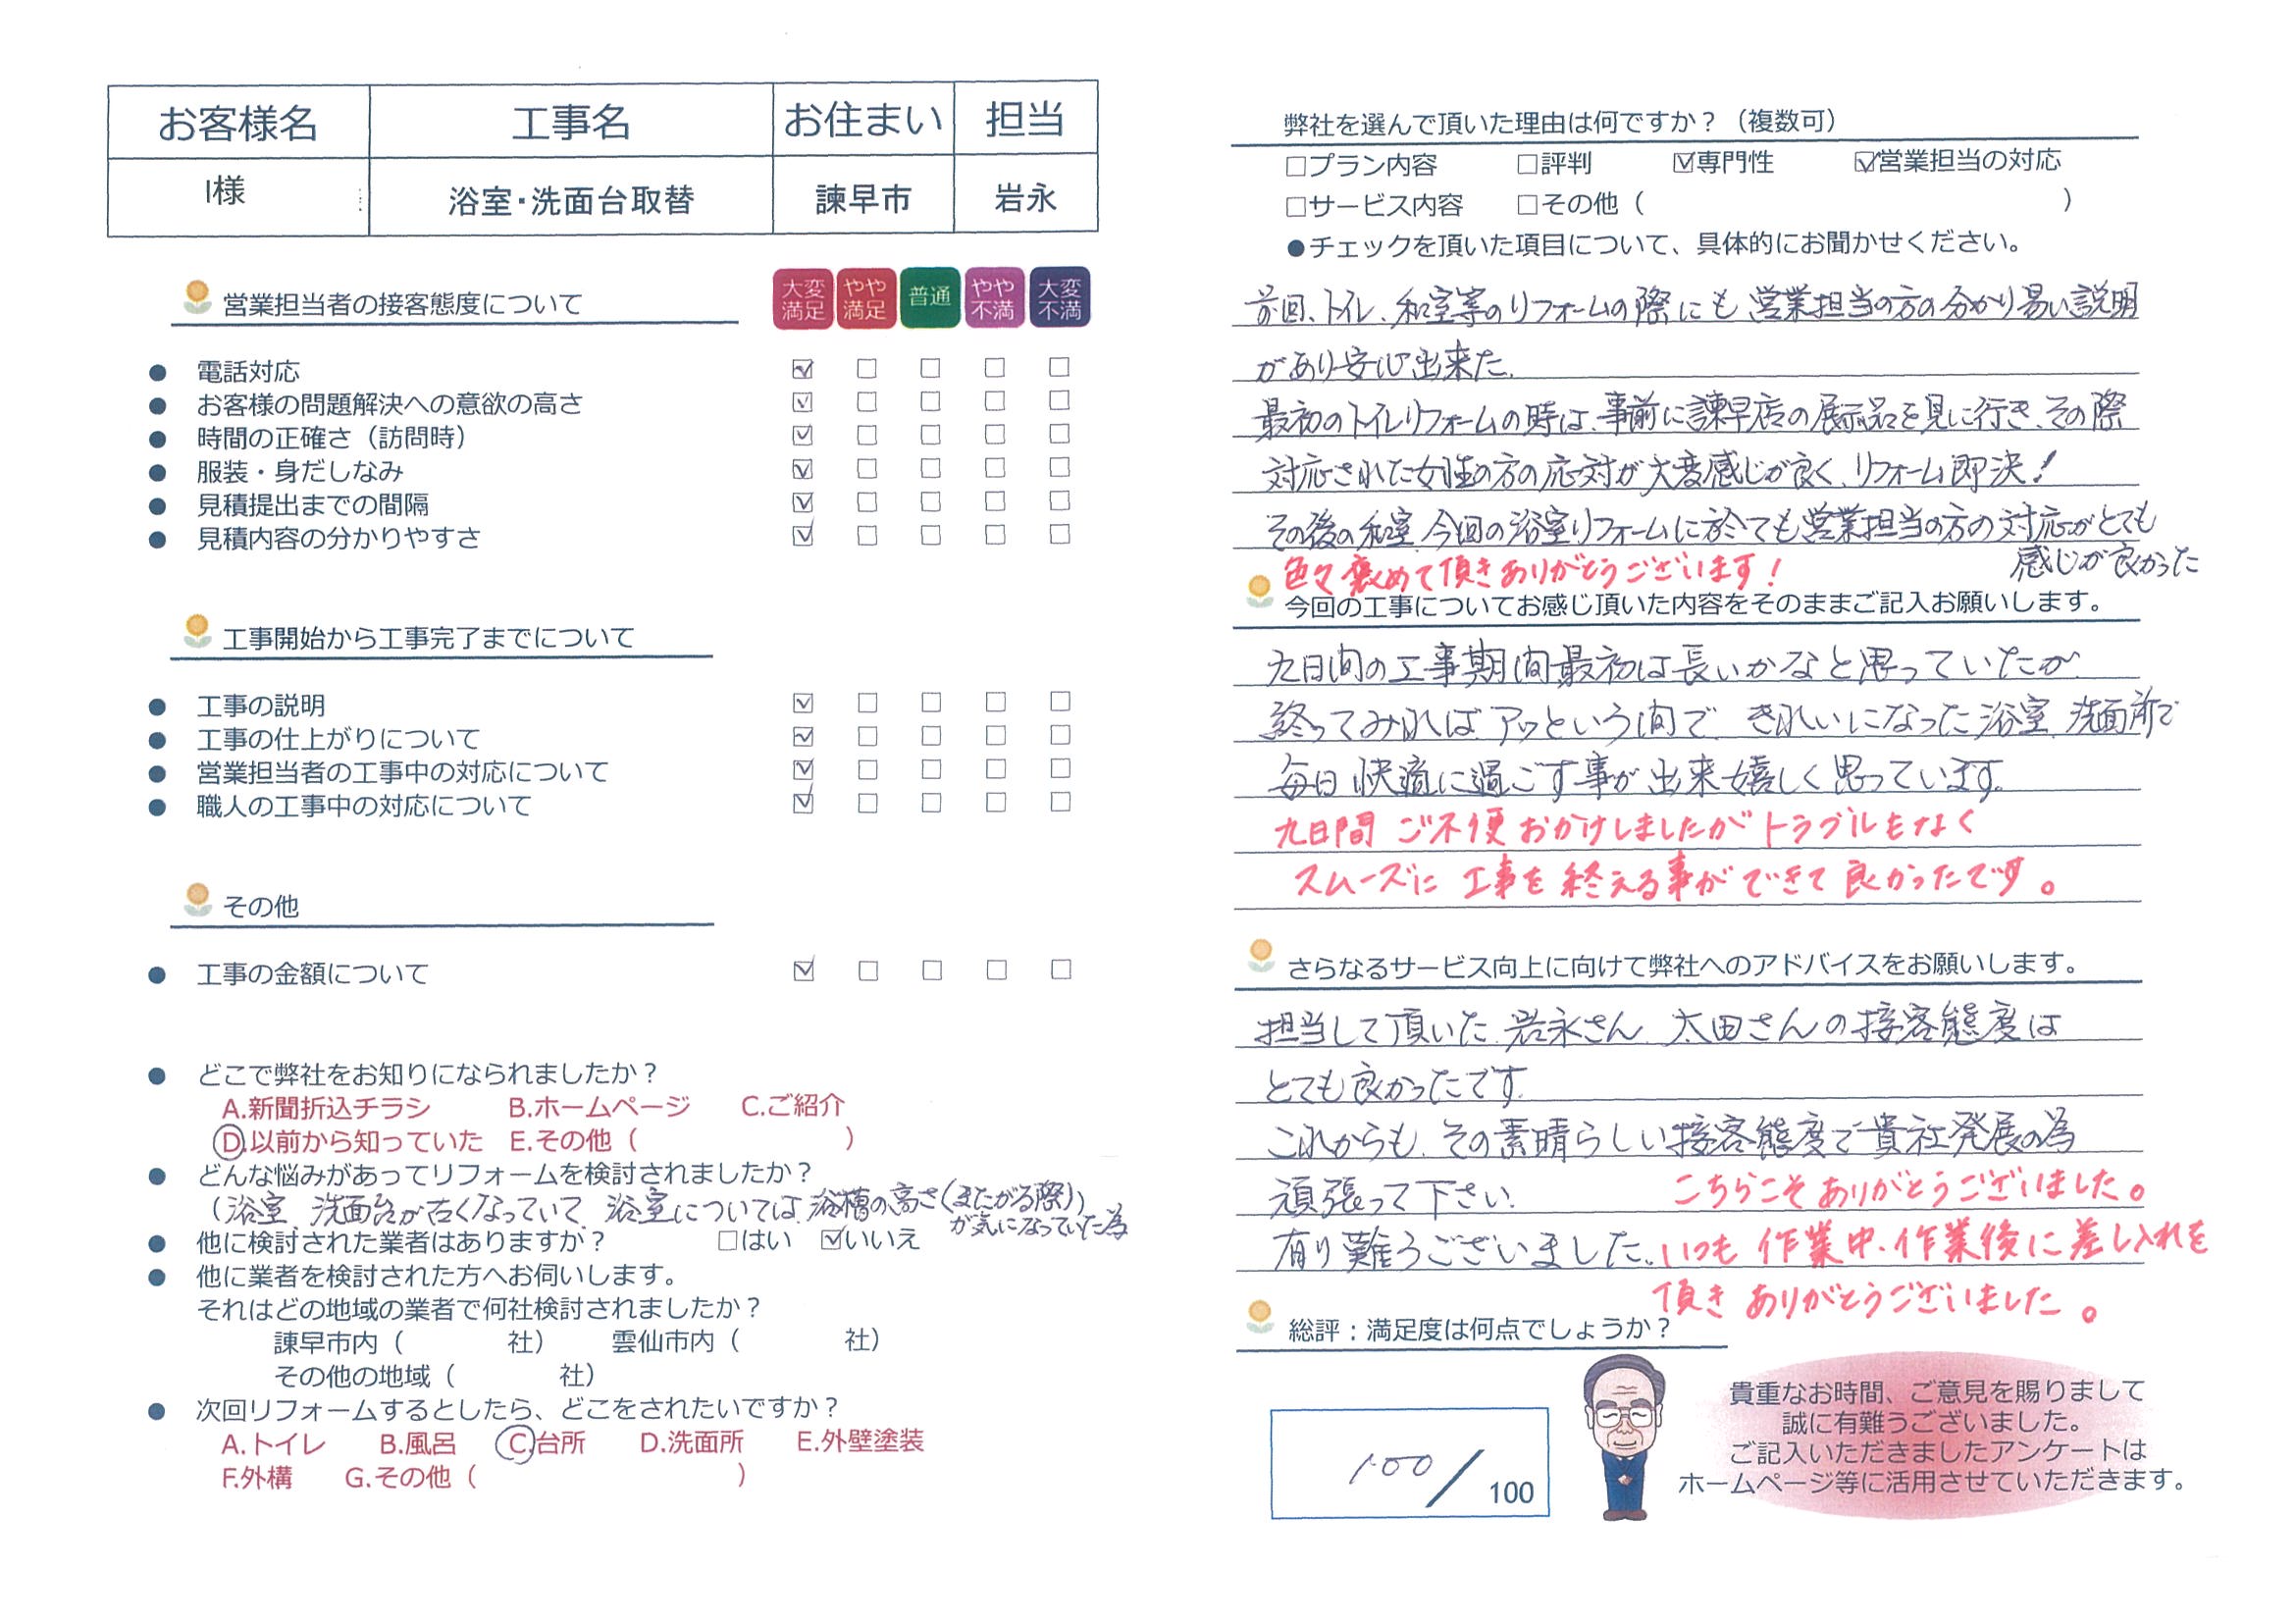 お客様名 工事名 お住まい 担当
I様 浴室・洗面台取替 諫早市 岩永
営業担当者の接客態度について
大変満足 やや満足 普通 やや不満 大変不満
● 電話対応 ☑ □ □ □ □
● お客様の問題解決への意欲の高さ ☑ □ □ □ □
● 時間の正確さ（訪問時） ☑ □ □ □ □
● 服装・身だしなみ ☑ □ □ □ □
● 見積提出までの間隔 ☑ □ □ □ □
● 見積内容の分かりやすさ ☑ □ □ □ □
工事開始から工事完了までについて
● 工事の説明 ☑ □ □ □ □
● 工事の仕上がりについて ☑ □ □ □ □
● 営業担当者の工事中の対応について ☑ □ □ □ □
● 職人の工事中の対応について ☑ □ □ □ □
その他
● 工事の金額について ☑ □ □ □ □
● どこで弊社をお知りになられましたか？
A.新聞折込チラシ B.ホームページ C.ご紹介
D.以前から知っていた E.その他（ ）
● どんな悩みがあってリフォームを検討されましたか？
（浴室、洗面台が古くなっていて、浴室については、浴槽の高さ（またがる際））
が気になっていた為
● 他に検討された業者はありますか？ □はい ☑いいえ
● 他に業者を検討された方へお伺いします。
それはどの地域の業者で何社検討されましたか？
諫早市内（ 社） 雲仙市内（ 社）
その他の地域（ 社）
● 次回リフォームするとしたら、どこをされたいですか？
A.トイレ B.風呂 C.台所 D.洗面所 E.外壁塗装
F.外構 G.その他（ ）
弊社を選んで頂いた理由は何ですか？（複数可）
□プラン内容 □評判 ☑専門性 ☑営業担当の対応
□サービス内容 □その他（ ）
●チェックを頂いた項目について、具体的にお聞かせください。
前回、トイレ、和室等のリフォームの際にも営業担当の方の分かり易い説明
があり安心出来た。
最初のトイレリフォームの時は、事前に諫早店の展示品を見に行き、その際
対応された女性の方の応対が大変感じが良く、リフォーム即決！
その後の和室、今回の浴室リフォームに於ても営業担当の方の対応がとても
感じが良かった
色々褒めて頂きありがとうございます！
今回の工事についてお感じ頂いた内容をそのままご記入お願いします。
九日間の工事期間最初は長いかなと思っていたが、
終ってみればアッという間で、きれいになった浴室、洗面所で
毎日快適に過ごす事が出来嬉しく思っています。
九日間 ご不便おかけしましたがトラブルもなく
スムーズに 工事を終える事ができて良かったです。
さらなるサービス向上に向けて弊社へのアドバイスをお願いします。
担当して頂いた、岩永さん、太田さんの接客態度は
とても良かったです。
これからも、その素晴らしい接客態度で貴社発展の為
頑張って下さい。
こちらこそありがとうございました。
有り難うございました。
いつも 作業中・作業後に差し入れを
頂き ありがとうございました。
総評：満足度は何点でしょうか？
100／100
貴重なお時間、ご意見を賜りまして
誠に有難うございました。
ご記入いただきましたアンケートは
ホームページ等に活用させていただきます。